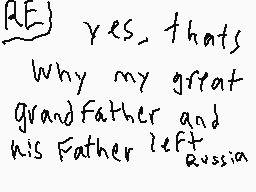 RE yes, thats
Why my great
grandfather and
his Father left
Russia